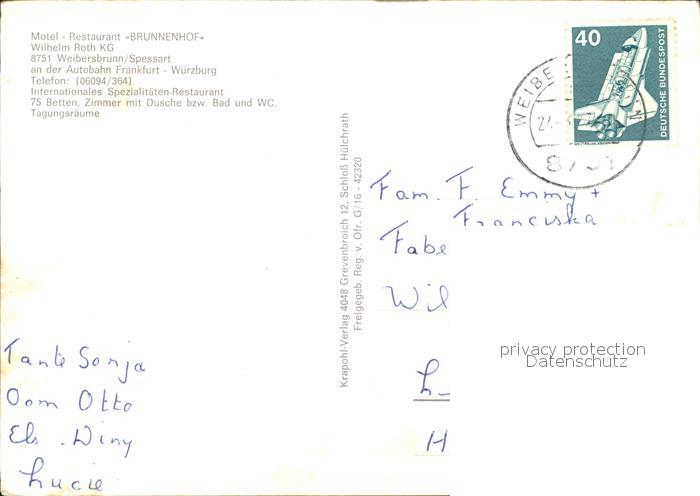 Motel - Restaurant »BRUNNENHOF«
Wilhelm Roth KG
8751 Weibersbrunn/Spessart
an der Autobahn Frankfurt - Würzburg
Telefon: (06094/364)
Internationales Spezialitäten-Restaurant
75 Betten, Zimmer mit Dusche bzw. Bad und WC.
Tagungsräume
40
DEUTSCHE BUNDESPOST
WEIBE
Krapohl-Verlag 4048 Grevenbroich 12, Schloß Hülchrath
Freigegeb. Reg. v. Ofr. G/16 - 42320
Fam. F. Emmy +
Franciska
Fabe
Wil
H
privacy protection
Datenschutz
Tante Sonja
Oom Otto
Els . Diny
Lucie